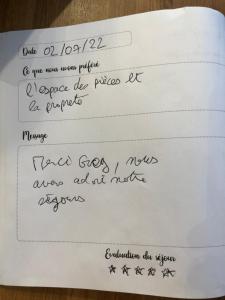 Date 02/07/22
Ce que nous avons préféré
l'espace des pièces et
la propreté
Message
Merci Greg, nous
avons adoré notre
séjours
Evaluation du séjour